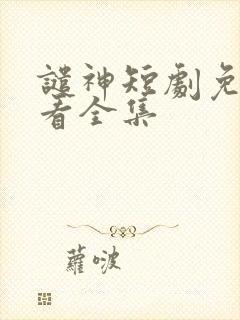 譴神短劇免
看全集
蘿啵